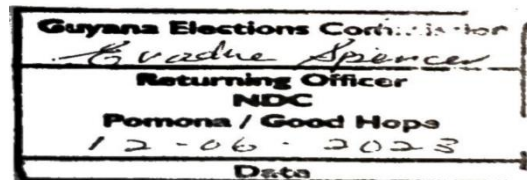 Guyana Elections Commission
Evadne Spencer
Returning Officer
NDC
Pomona / Good Hope
12-06-2023
Date